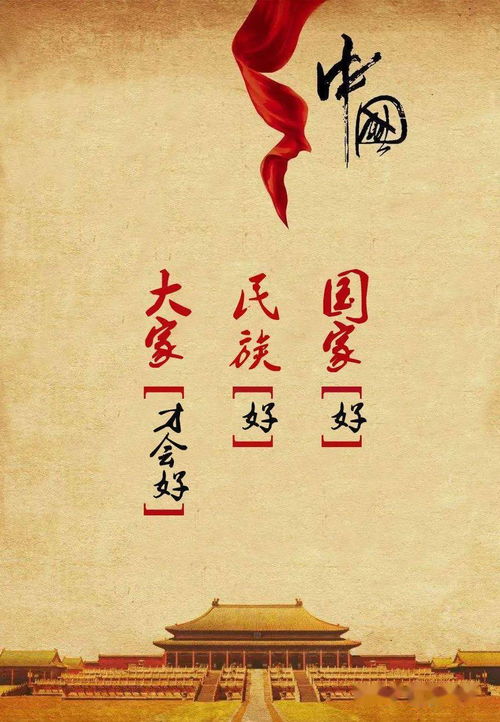 中國
国家[好]
民族[好]
大家[才会好]